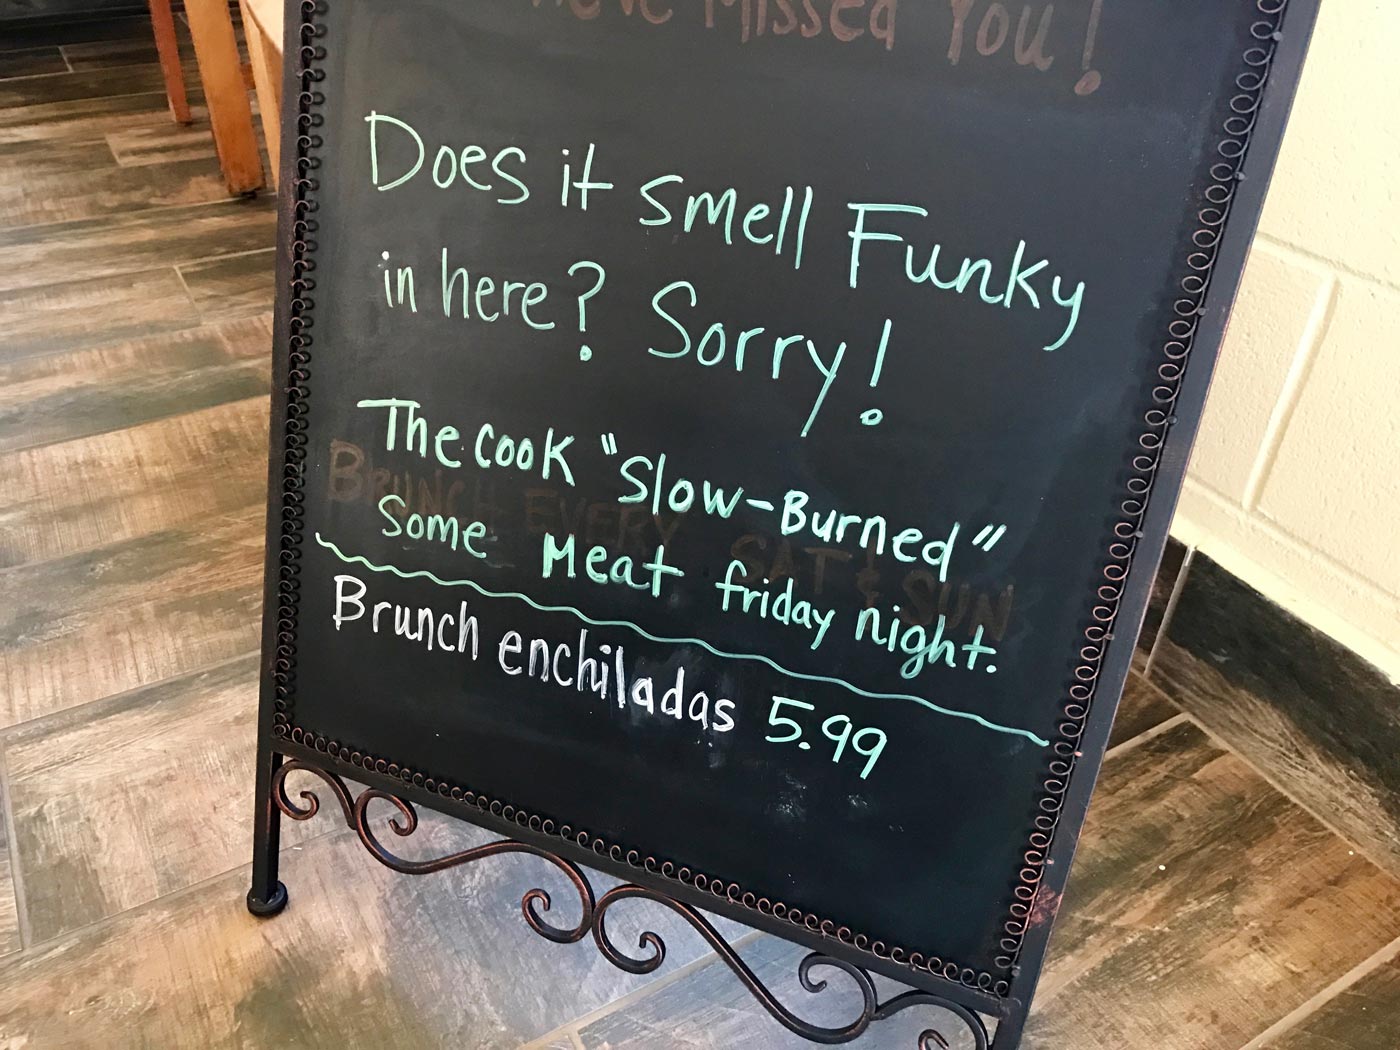 Missed You!
Does it smell Funky
in here? Sorry!
The cook "Slow-Burned"
Some Meat friday night.
BRUNCH EVERY SAT & SUN
Brunch enchiladas 5.99